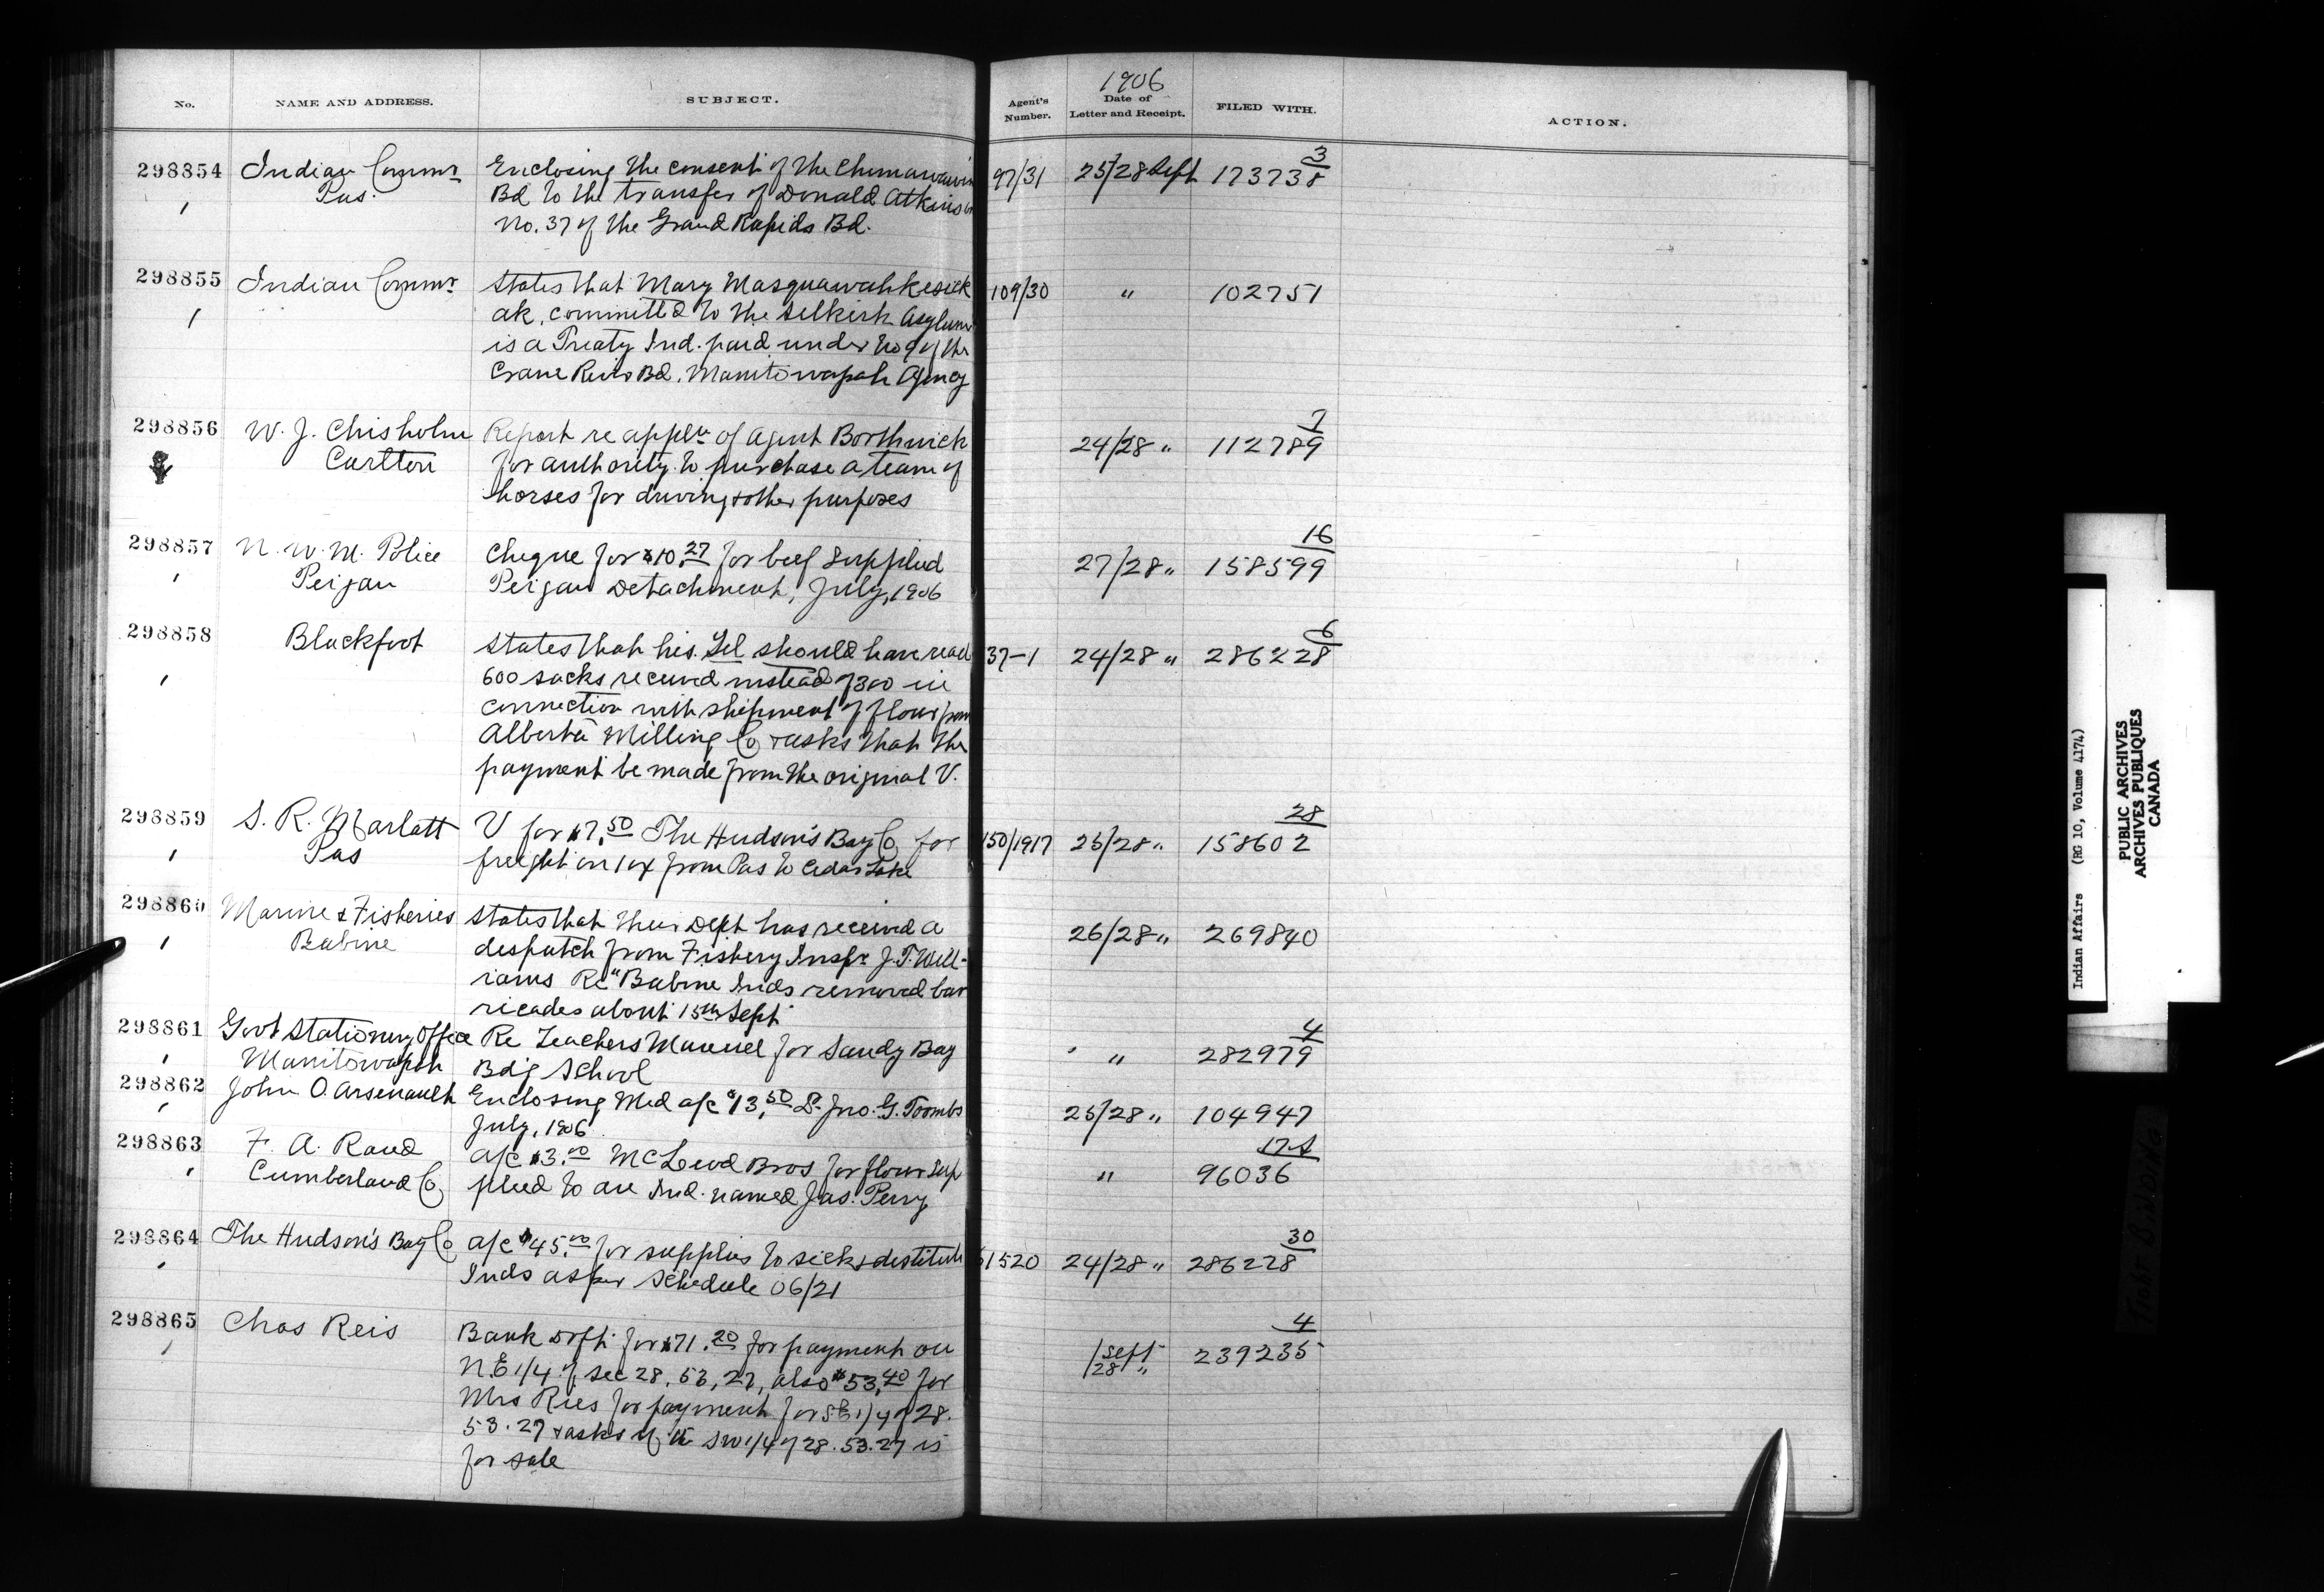 1906
No. NAME AND ADDRESS. SUBJECT. Agent's Number. Date of Letter and Receipt. FILED WITH. ACTION.
298854 Indian Commr Enclosing the consent of the Chemawawin 97/31 25/28 Sept 173738 3
Pas. Bd to the transfer of Donald Atkinson
No. 37 of the Grand Rapids Bd.
298855 Indian Commr States that Mary Masquawahkesick 109/30 " 102751
ak, committed to the Selkirk Asylum
is a Treaty Ind. paid under No 9 of the
Crane River Bd. Manitowapah Agency
298856 W. J. Chisholm Report re appln of Agent Borthwick 24/28 " 112789 7
Carlton for authority to purchase a team of
horses for driving & other purposes
298857 N. W. M. Police Cheque for $10.27 for beef supplied 27/28 " 158599 16
Peigan Peigan Detachment, July, 1906
298858 Blackfoot States that his Tel should have read 37-1 24/28 " 286228 6
600 sacks received instead of 300 in
connection with shipment of flour from
Alberta Milling Co & asks that the
payment be made from the original V.
298859 S. R. Marlatt V for $7.50 The Hudson's Bay Co for 150/1917 25/28 " 158602 28
Pas freight on 1 ox from Pas to Cedar Lake
298860 Marine & Fisheries States that their Dept has received a 26/28 " 269840
Babine despatch from Fishery Inspr J. T. Will-
iams Re "Babine Inds removed bar
ricades about 15th Sept
298861 Govt Stationery Office Re Teachers Manuel for Sandy Bay " 282979 4
Manitowapah Bdg School
298862 John O. Arsenault Enclosing Med a/c $13.50 Dr. Jno. G. Toombs 25/28 " 104947
July, 1906
298863 F. A. Rand a/c $3.00 McLeod Bros for flour sup " 96036
Cumberland Co plied to an Ind. named Jas. Perry
298864 The Hudson's Bay Co a/c $45.00 for supplies to sick & destitute 1520 24/28 " 286228 30
Inds as per Schedule 06/21
298865 Chas Reis Bank Drft for $71.20 for payment on 1 Sept 28 " 239235 4
N.E 1/4 of sec 28, 53, 27, also $53.40 for
Mrs Ries for payment for SE 1/4 of 28.
53.27 & asks if SW 1/4 of 28.53.27 is
for sale
Indian Affairs (RG 10, Volume 4174)
PUBLIC ARCHIVES
ARCHIVES PUBLIQUES
CANADA